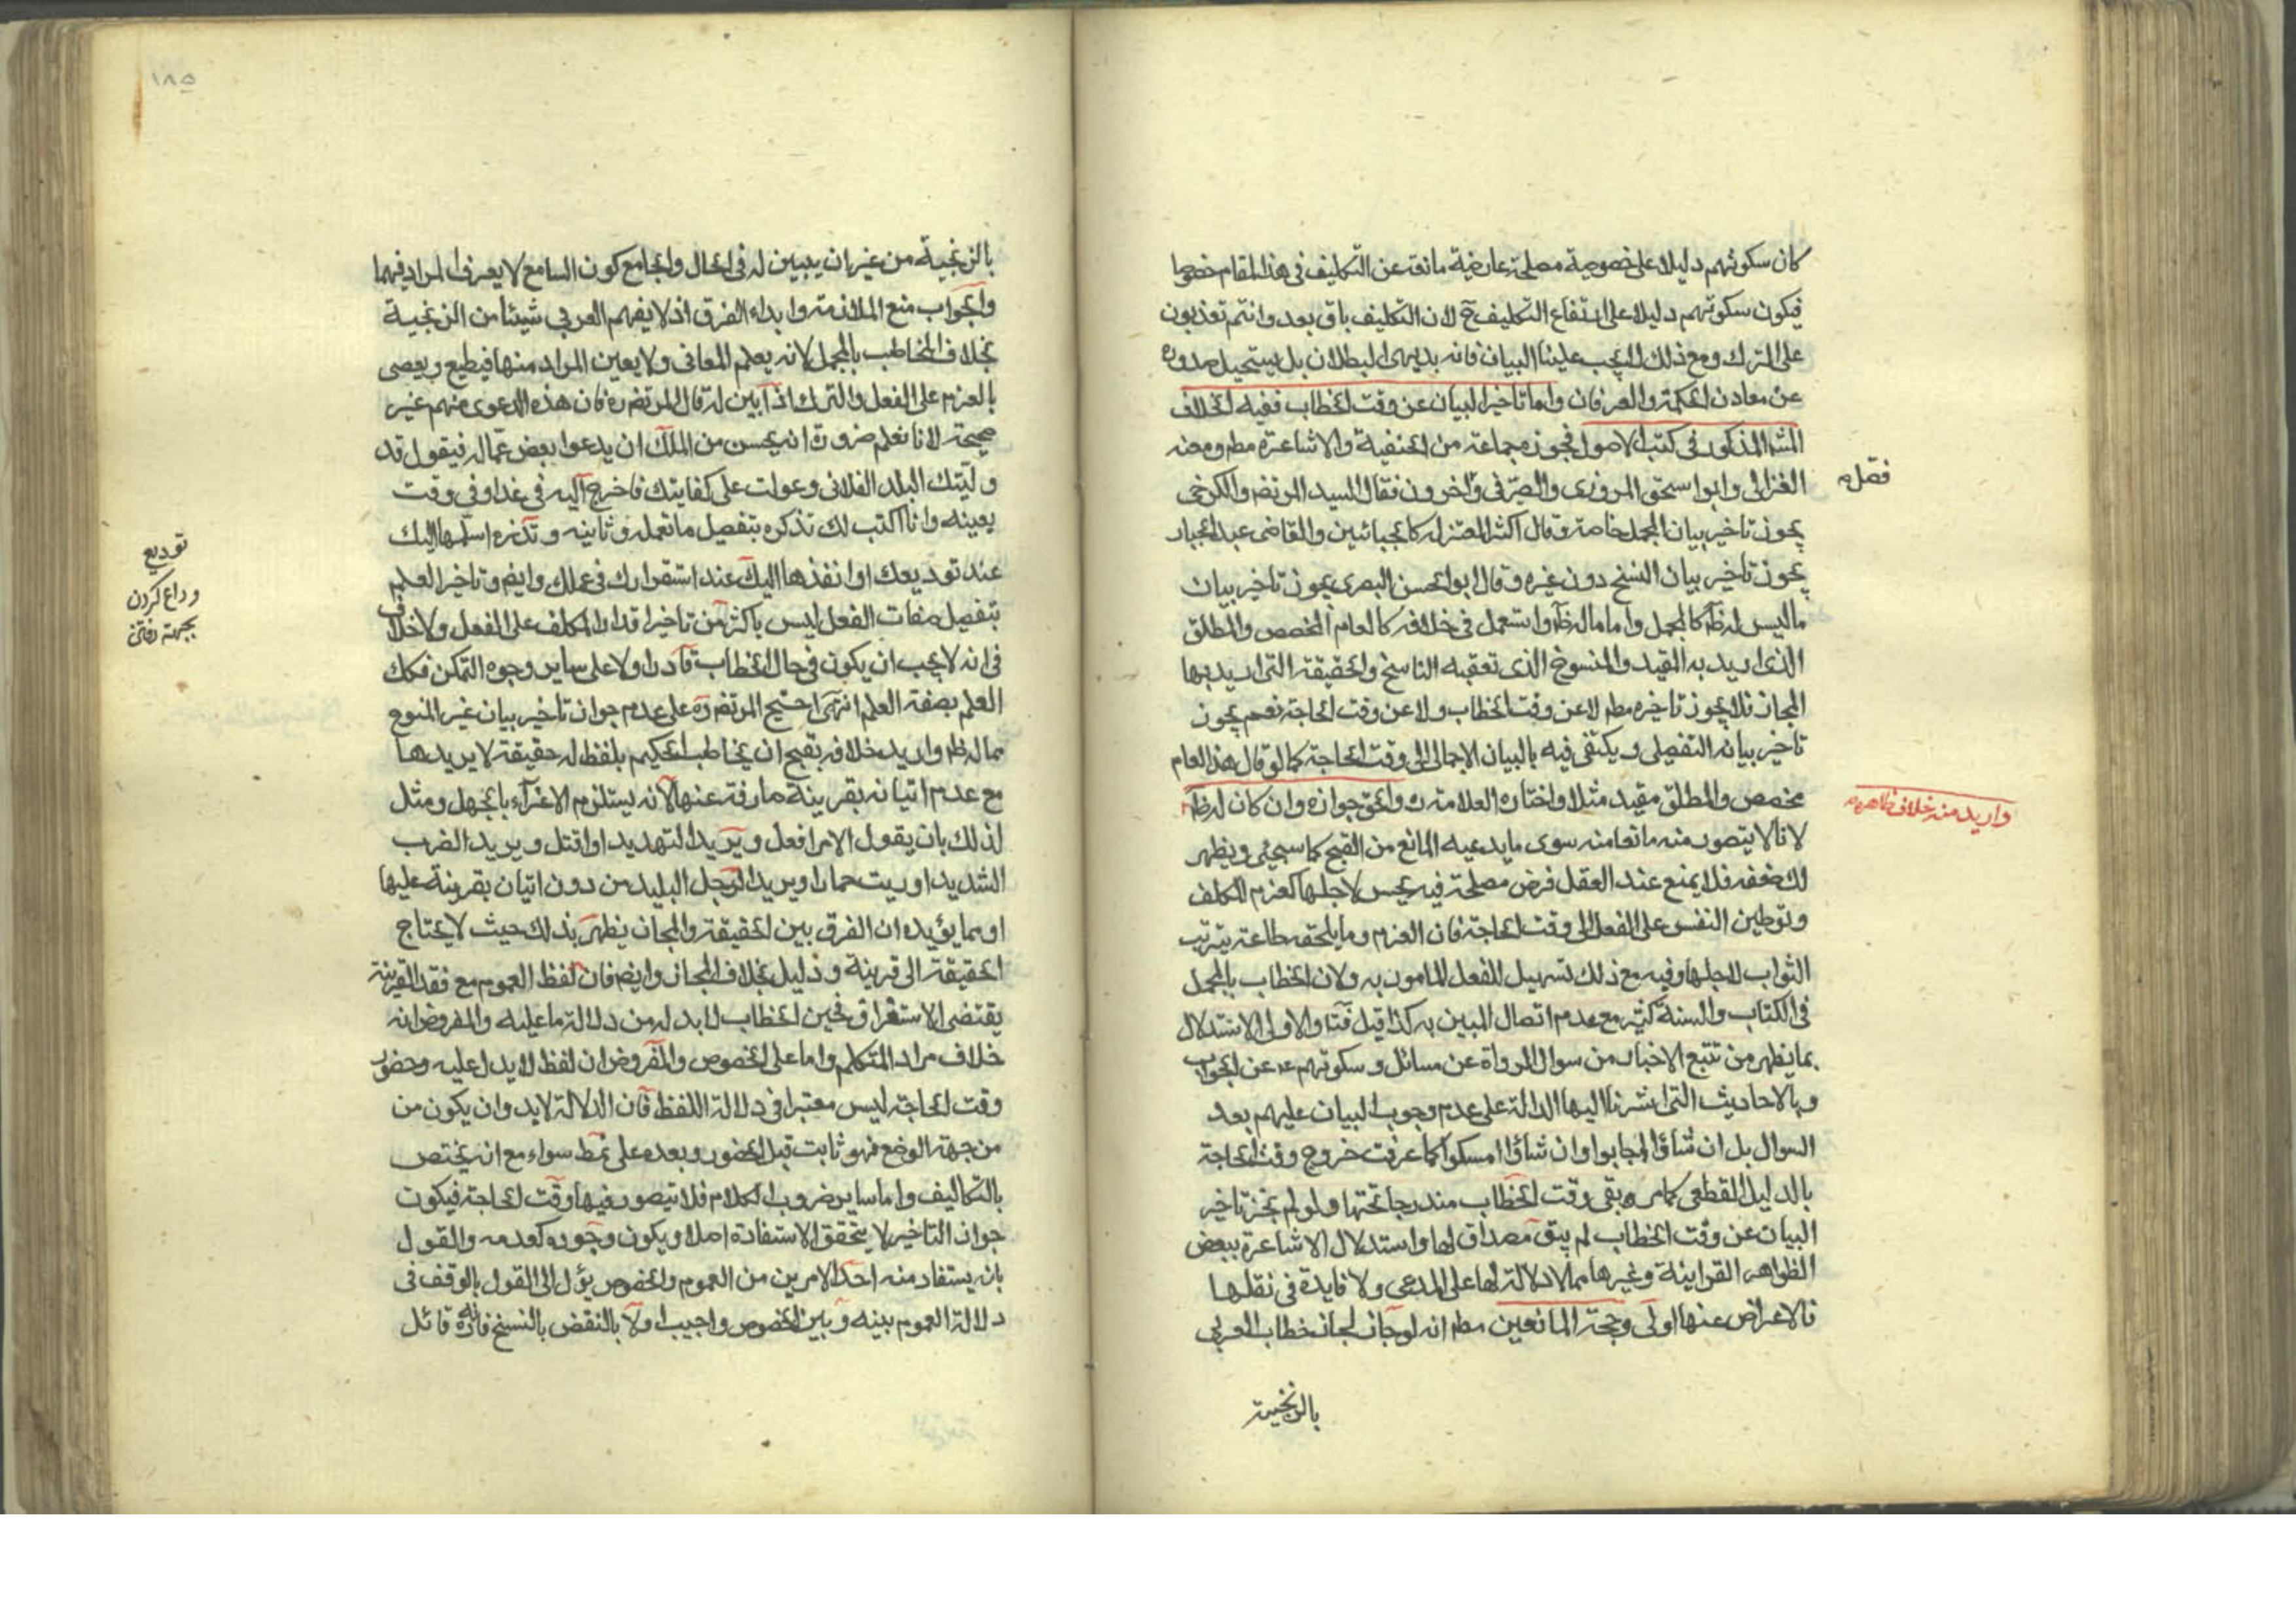 كان سكوتهم دليلا على خصوصية مصلحة عارضية مانعة عن التكليف في هذا المقام خصوصا
فيكون سكوتهم دليلا على ارتفاع التكليف ح لا ان التكليف باق بعد وانتم تعذبون
على الترك ومع ذلك لا يجب علينا البيان فانه بديهى البطلان بل يستحيل صدوره
عن معادن الحكمة والعرفان واما تاخير البيان عن وقت الخطاب ففيه الخلاف
المش المذكور في كتب الاصول فجوزه جماعة من الحنفية والاشاعرة مط ومنعه
فصل
الغزالى وابوا سحق المروزى والصيرفى وآخرون فقال السيد المرتضى والكرخى
يجوز تاخير بيان المجمل خاصة وقال اكثر المعتزله كالجبائيين والقاضى عبد الجبار
يجوز تاخير بيان النسخ دون غيره وقال ابوالحسن البصرى يجوز تاخير بيان
ما ليس له ظ كالمجمل واما ماله ظ واستعمل في خلافه كالعام المخصص والمطلق
الذى اريد به المقيد والمنسوخ الذى تعقبه الناسخ والحقيقة التى اريد بها
المجاز فلا يجوز تاخيره مط لا عن وقت الخطاب ولا عن وقت الحاجة نعم يجوز
تاخير بيانه التفصيلى ويكتفى فيه بالبيان الاجمالى الى وقت الحاجة كما لو قال هذا العام
مخصص والمطلق مقيد مثلا واختاره العلامة ره والحق جوازه وان كان له ظ
واريد منه خلاف ظاهره
لانا لا يتصور منه مانعا منه سوى ما يدعيه المانع من القبح كما سيجئى ويظهر
لك ضعفه فلا يمنع عند العقل فرض مصلحة فيه يحسن لاجلها كعزم المكلف
وتوطين النفس على الفعل الى وقت الحاجة فان العزم وما يلحقه طاعة يترتب
الثواب لاجلها وفيه مع ذلك تسهيل للفعل المامور به ولان الخطاب بالمجمل
في الكتاب والسنة كثير مع عدم اتصال المبين به كذا قيل فتا والاولى الاستدلال
بما يظهر من تتبع الاخبار من سوال الرواة عن مسائل وسكوتهم ع عن الجواب
وبالاحاديث التى اشرنا اليها الدالة على عدم وجوب البيان عليهم بعد
السوال بل ان شاؤا اجابوا وان شاؤا امسكوا كما عرفت خروج وقت الحاجة
بالدليل القطعى كما مر وبقى وقت الخطاب مندرجا تحتها ولو لم يجز تاخير
البيان عن وقت الخطاب لم يبق مصداق لها واستدلال الاشاعرة ببعض
الظواهر القراينة وغيرها مما لا دلالة لها على المدعى ولا فايدة في نقلها
فالاعراض عنها اولى وحجة المانعين مط انه لو جاز لجاز خطاب العربى
بالزنجية
١٨٥
بالزنجية من غير ان يبين له في الحال والجامع كون السامع لا يعرف المراد فيهما
والجواب منع الملازمة وابداء الفرق اذ لا يفهم العربي شيئا من الزنجية
بخلاف المخاطب بالمجمل لانه يعلم المعانى ولا يعين المراد منها فيطيع ويعصى
بالعزم على الفعل والترك اذا بين له قال المرتضى ره فان هذه الدعوى منهم غير
صحيحة لانا نعلم ضرورة انه يحسن من الملك ان يدعوا بعض عماله فيقول قد
وليتك البلد الفلانى وعولت على كفايتك فاخرج اليه في غد او في وقت
بعينه وانا اكتب لك تذكره بتفصيل ما تعمله وتاتيه وتذره اسلمها اليك
توديع
وداع كردن
بجهة رفتن
عند توديعك او انفذها اليك عند استقرارك في عملك وايض وتاخير العلم
بتفصيل صفات الفعل ليس باكثر من تاخير اقدار المكلف على الفعل ولا خلاف
في انه لا يجب ان يكون في حال الخطاب قادرا ولا على ساير وجوه التمكن فكك
العلم بصفة العلم انتهى احتج المرتضى ره على عدم جواز تاخير بيان غير المنوع
مما له ظ واريد خلافه بقبح ان يخاطب الحكيم بلفظ له حقيقة لا يريدها
مع عدم اتيانه بقرينة صارفة عنها لانه يستلزم الاغراء بالجهل ومثل
لذلك بان يقول الامر افعل ويريد التهديد او اقتل ويريد الضرب
الشديد او رايت حمارا ويريد الرجل البليد من دون اتيان بقرينة عليها
او مما يؤيده ان الفرق بين الحقيقة والمجاز يظهر بذلك حيث لا يحتاج
الحقيقة الى قرينة ودليل بخلاف المجاز وايض فان لفظ العموم مع فقد القرينة
يقتضى الاستغراق فحين الخطاب لابد له من دلالة ما عليه والمفروض انه
خلاف مراد المتكلم واما على الخصوص والمفروض ان لفظ لا يدل عليه وحضور
وقت الحاجة ليس معتبرا في دلالة اللفظ فان الدلالة لابد وان يكون من
من جهة الوضع فهو ثابت قبل الحضور وبعده على نمط سواء مع انه يختص
بالتكاليف واما ساير ضروب الكلام فلا يتصور فيها وقت الحاجة فيكون
جواز التاخير لا يتحقق الاستفادة اصلا ويكون وجوده كعدمه والقول
بانه يستفاد منه احد الامرين من العموم والخصوص يؤل الى القول بالوقف في
دلالة العموم بينه وبين الخصوص واجيب اولا بالنقض بالنسخ فانه ره قائل